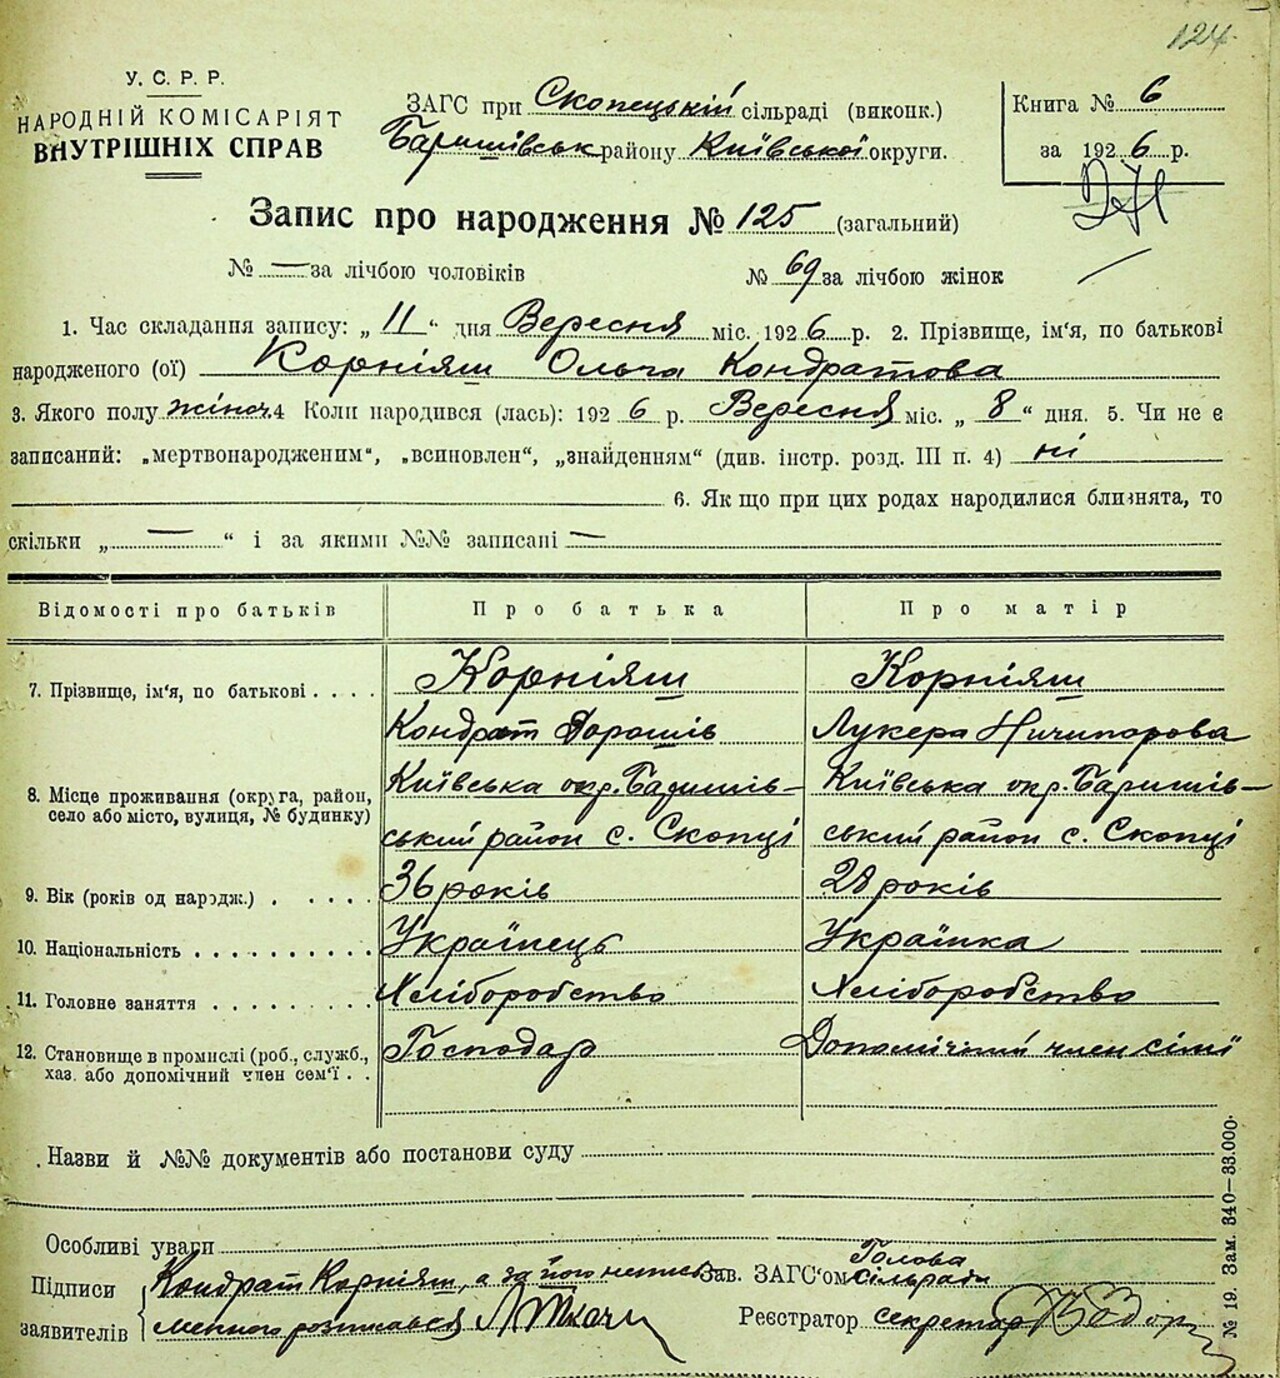 124
У. С. Р. Р.
НАРОДНІЙ КОМІСАРІЯТ
ВНУТРІШНІХ СПРАВ
ЗАГС при Скопецькій сільраді (виконк.)
Баришівськ району Київської округи.
Книга № 6
за 1926 р.
Запис про народження № 125 (загальний)
№ — за лічбою чоловіків № 69 за лічбою жінок
1. Час складання запису: „ 11 “ дня Вересня міс. 1926 р. 2. Прізвище, ім'я, по батькові
народженого (ої) Корніяш Ольга Кондратова
3. Якого полу жіноч. 4 Коли народився (лась): 1926 р. Вересня міс. „ 8 “ дня. 5. Чи не є
записаний: „мертвонародженим“, „всиновлен“, „знайденням“ (див. інстр. розд. III п. 4) ні
6. Як що при цих родах народилися близнята, то
скільки „ — “ і за якими №№ записані —
Відомості про батьків Про батька Про матір
7. Прізвище, ім'я, по батькові . . . . Корніяш Корніяш
Кондрат Дорошів Лукера Ничипорова
8. Місце проживання (округа, район, село або місто, вулиця, № будинку) Київська окр. Баришів- Київська окр. Баришів-
ський район с. Скопці ський район с. Скопці
9. Вік (років од народж.) . . . . . 36 років 28 років
10. Національність . . . . . . . . . . Українець Українка
11. Головне заняття . . . . . . . . Хліборобство Хліборобство
12. Становище в промислі (роб., служб., Господар Допомічний член сімї
хаз. або допомічний член сем'ї . .
Назви й №№ документів або постанови суду
Особливі уваги
Підписи Кондрат Корніяш, а за його неписьЗав. ЗАГС'ом Голова сільради
заявителів менного розписався Ткач Реєстратор секретар
№ 19. Зам. 340—33.000.